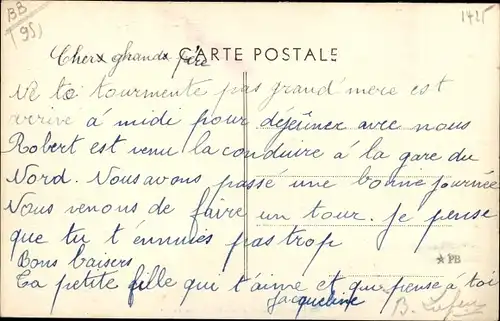 BB
(95)
1425
Cher grand père
CARTE POSTALE
Ne te tourmente pas grand'mere est
arrivé à midi pour déjeûner avec nous
Robert est venu la conduire à la gare du
Nord. Nous avons passé une bonne journée
Nous venons de faire un tour. je pense
que tu t'énnuies pas trop
Bons baisers
PB
Ta petite fille qui t'aime et qui pense à toi
Jacqueline
B.